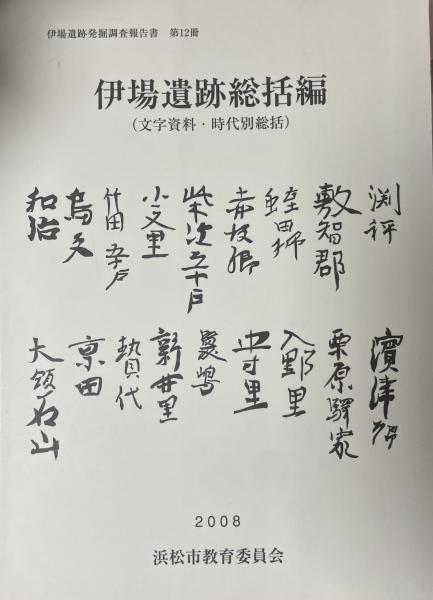 伊場遺跡発掘調査報告書 第12冊
伊場遺跡総括編
(文字資料・時代別総括)
渕評
敷智郡
蛭田郷
赤坂郷
柴江五十戸
小文里
竹田五十戸
烏文
和治
濱津郷
栗原驛家
入野里
中寸里
象嶋
新井里
贄代
京田
大領石山
2008
浜松市教育委員会